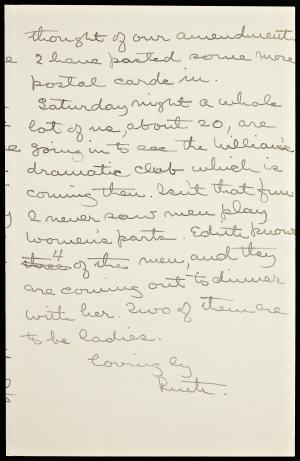 thought of our amendment.
I have pasted some more
postal cards in.
Saturday night a whole
lot of us, about 20, are
going in to see the William's
dramatic club which is
coming then. Isn't that fun
I never saw men play
women's parts. Edith knows
4
three of the men, and they
are coming out to dinner
with her. Two of them are
to be ladies.
Lovingly
Ruth.